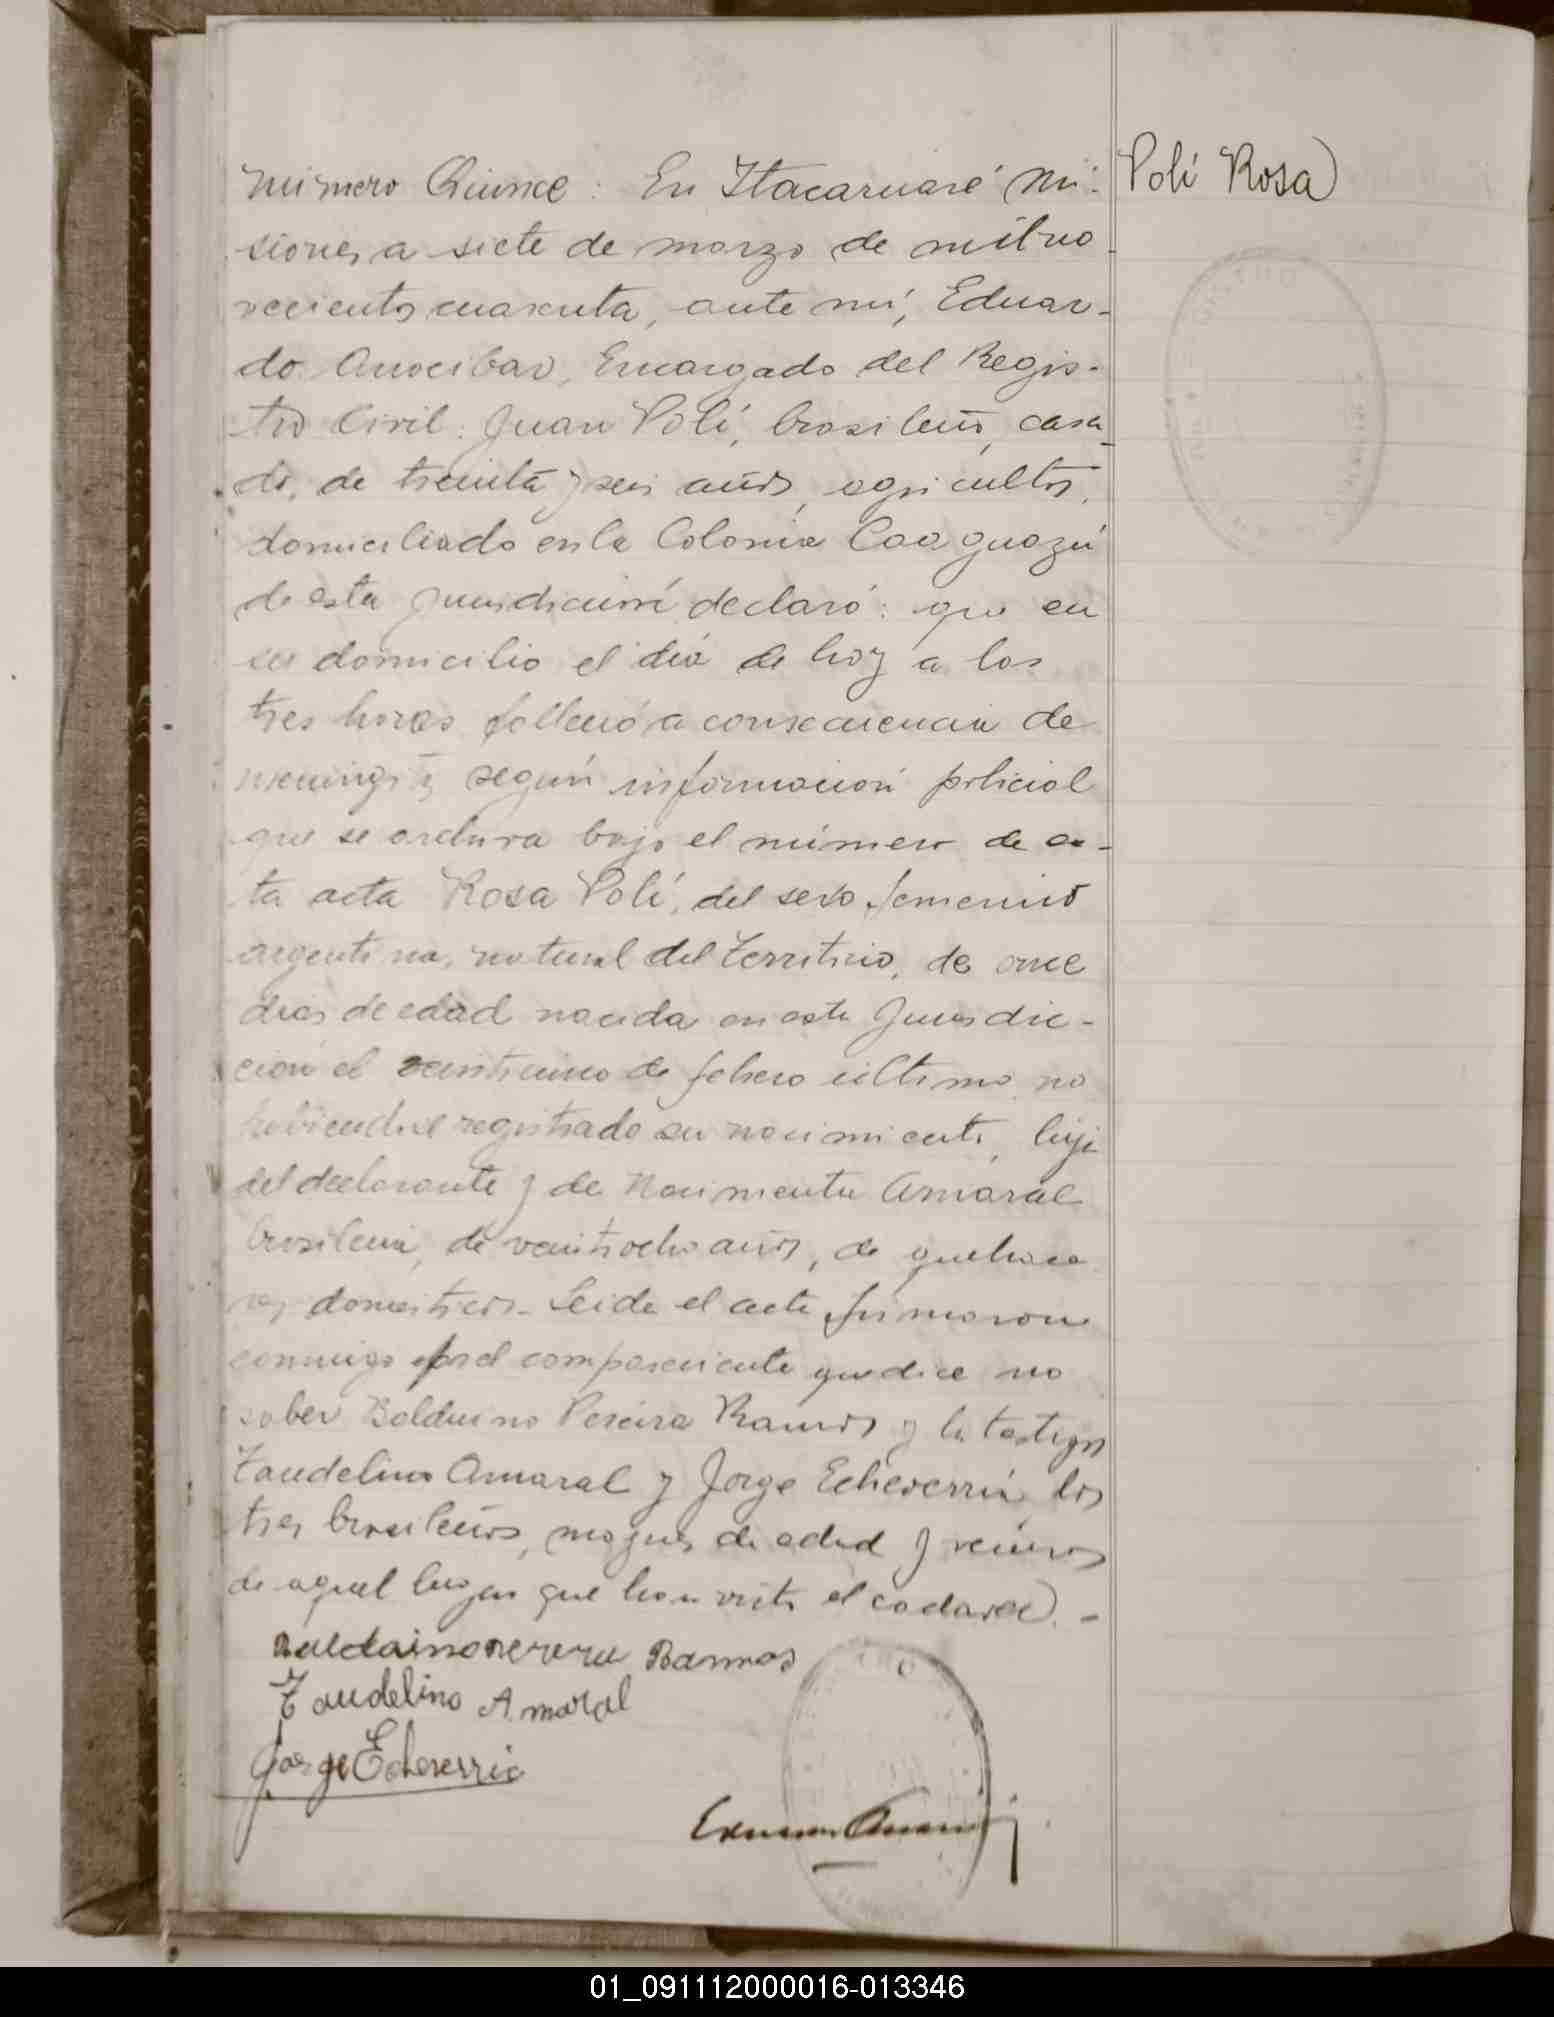 Número Quince: En Itacaruaré Mi-
siones, a siete de marzo de milno-
vecientos cuarenta, ante mí, Eduar-
do Anocibar, Encargado del Regis-
tro Civil: Juan Polí, brasileño, casa-
do, de treinta y seis años, agricultor,
domiciliado en la Colonia Caaguazú
de esta jurisdicción declaró: que en
su domicilio el día de hoy a las
tres horas falleció a consecuencia de
meningitis según información policial
que se archiva bajo el número de es-
ta acta Rosa Polí, del sexo femenino
argentina, natural del Territorio, de once
dias de edad nacida en esta Jurisdic-
ción el veinticinco de febrero último no
habiendose registrado su nacimiento, hija
del declarante y de Nacimenta Amaral
brasilena, de veintiocho años, de quehace
res domésticos. Leida el acta firmaron
conmigo por el compareciente que dice no
saber Balduino Pereira Ramos y los testigos
Taudelino Amaral y Jorge Echeverria, los
tres brasileños, mayores de edad y vecinos
de aquel lugar que han visto el cadaver. -
Ramos
Taudelino Amaral
Jorge Echeverria
Polí Rosa
01_091112000016-013346